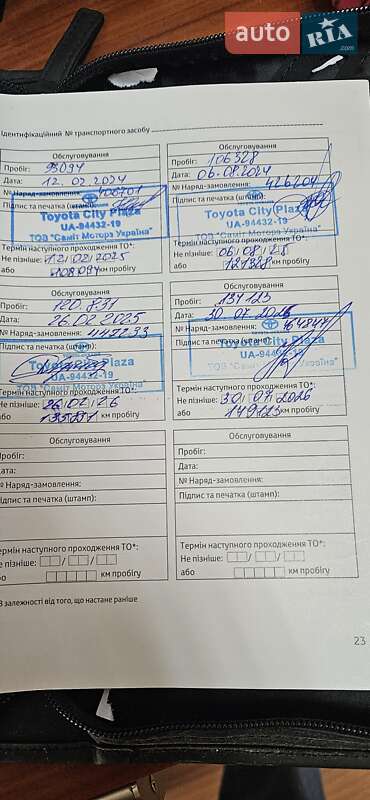 auto RIA.com
Ідентифікаційний № транспортного засобу
Обслуговування
Пробіг: 93094
Дата: 12.02.2024
№ Наряд-замовлення: 408701
Підпис та печатка (штамп):
Toyota City Plaza
UA-94432-19
ТОВ "Саміт Моторз Україна"
Термін наступного проходження ТО*:
Не пізніше: 12/02/2025
або 108094 км пробігу
Обслуговування
Пробіг: 106328
Дата: 06.08.2024
№ Наряд-замовлення: 426204
Підпис та печатка (штамп):
Toyota City Plaza
UA-94432-19
ТОВ "Саміт Моторз Україна"
Термін наступного проходження ТО*:
Не пізніше: 06/08/25
або 121328 км пробігу
Обслуговування
Пробіг: 120.831
Дата: 26.02.2025
№ Наряд-замовлення:
Підпис та печатка (штамп):
Toyota City Plaza
UA-94432-19
ТОВ "Саміт Моторз Україна"
Термін наступного проходження ТО*:
Не пізніше: 26/02/26
або км пробігу
Обслуговування
Пробіг: 134123
Дата: 30.07.2025
№ Наряд-замовлення:
Підпис та печатка (штамп):
Toyota City Plaza
UA-94432-19
ТОВ "Саміт Моторз Україна"
Термін наступного проходження ТО*:
Не пізніше: 30/07/2026
або 149123 км пробігу
Обслуговування
Пробіг:
Дата:
№ Наряд-замовлення:
Підпис та печатка (штамп):
Термін наступного проходження ТО*:
Не пізніше: / /
або км пробігу
Обслуговування
Пробіг:
Дата:
№ Наряд-замовлення:
Підпис та печатка (штамп):
Термін наступного проходження ТО*:
Не пізніше: / /
або км пробігу
В залежності від того, що настане раніше
23